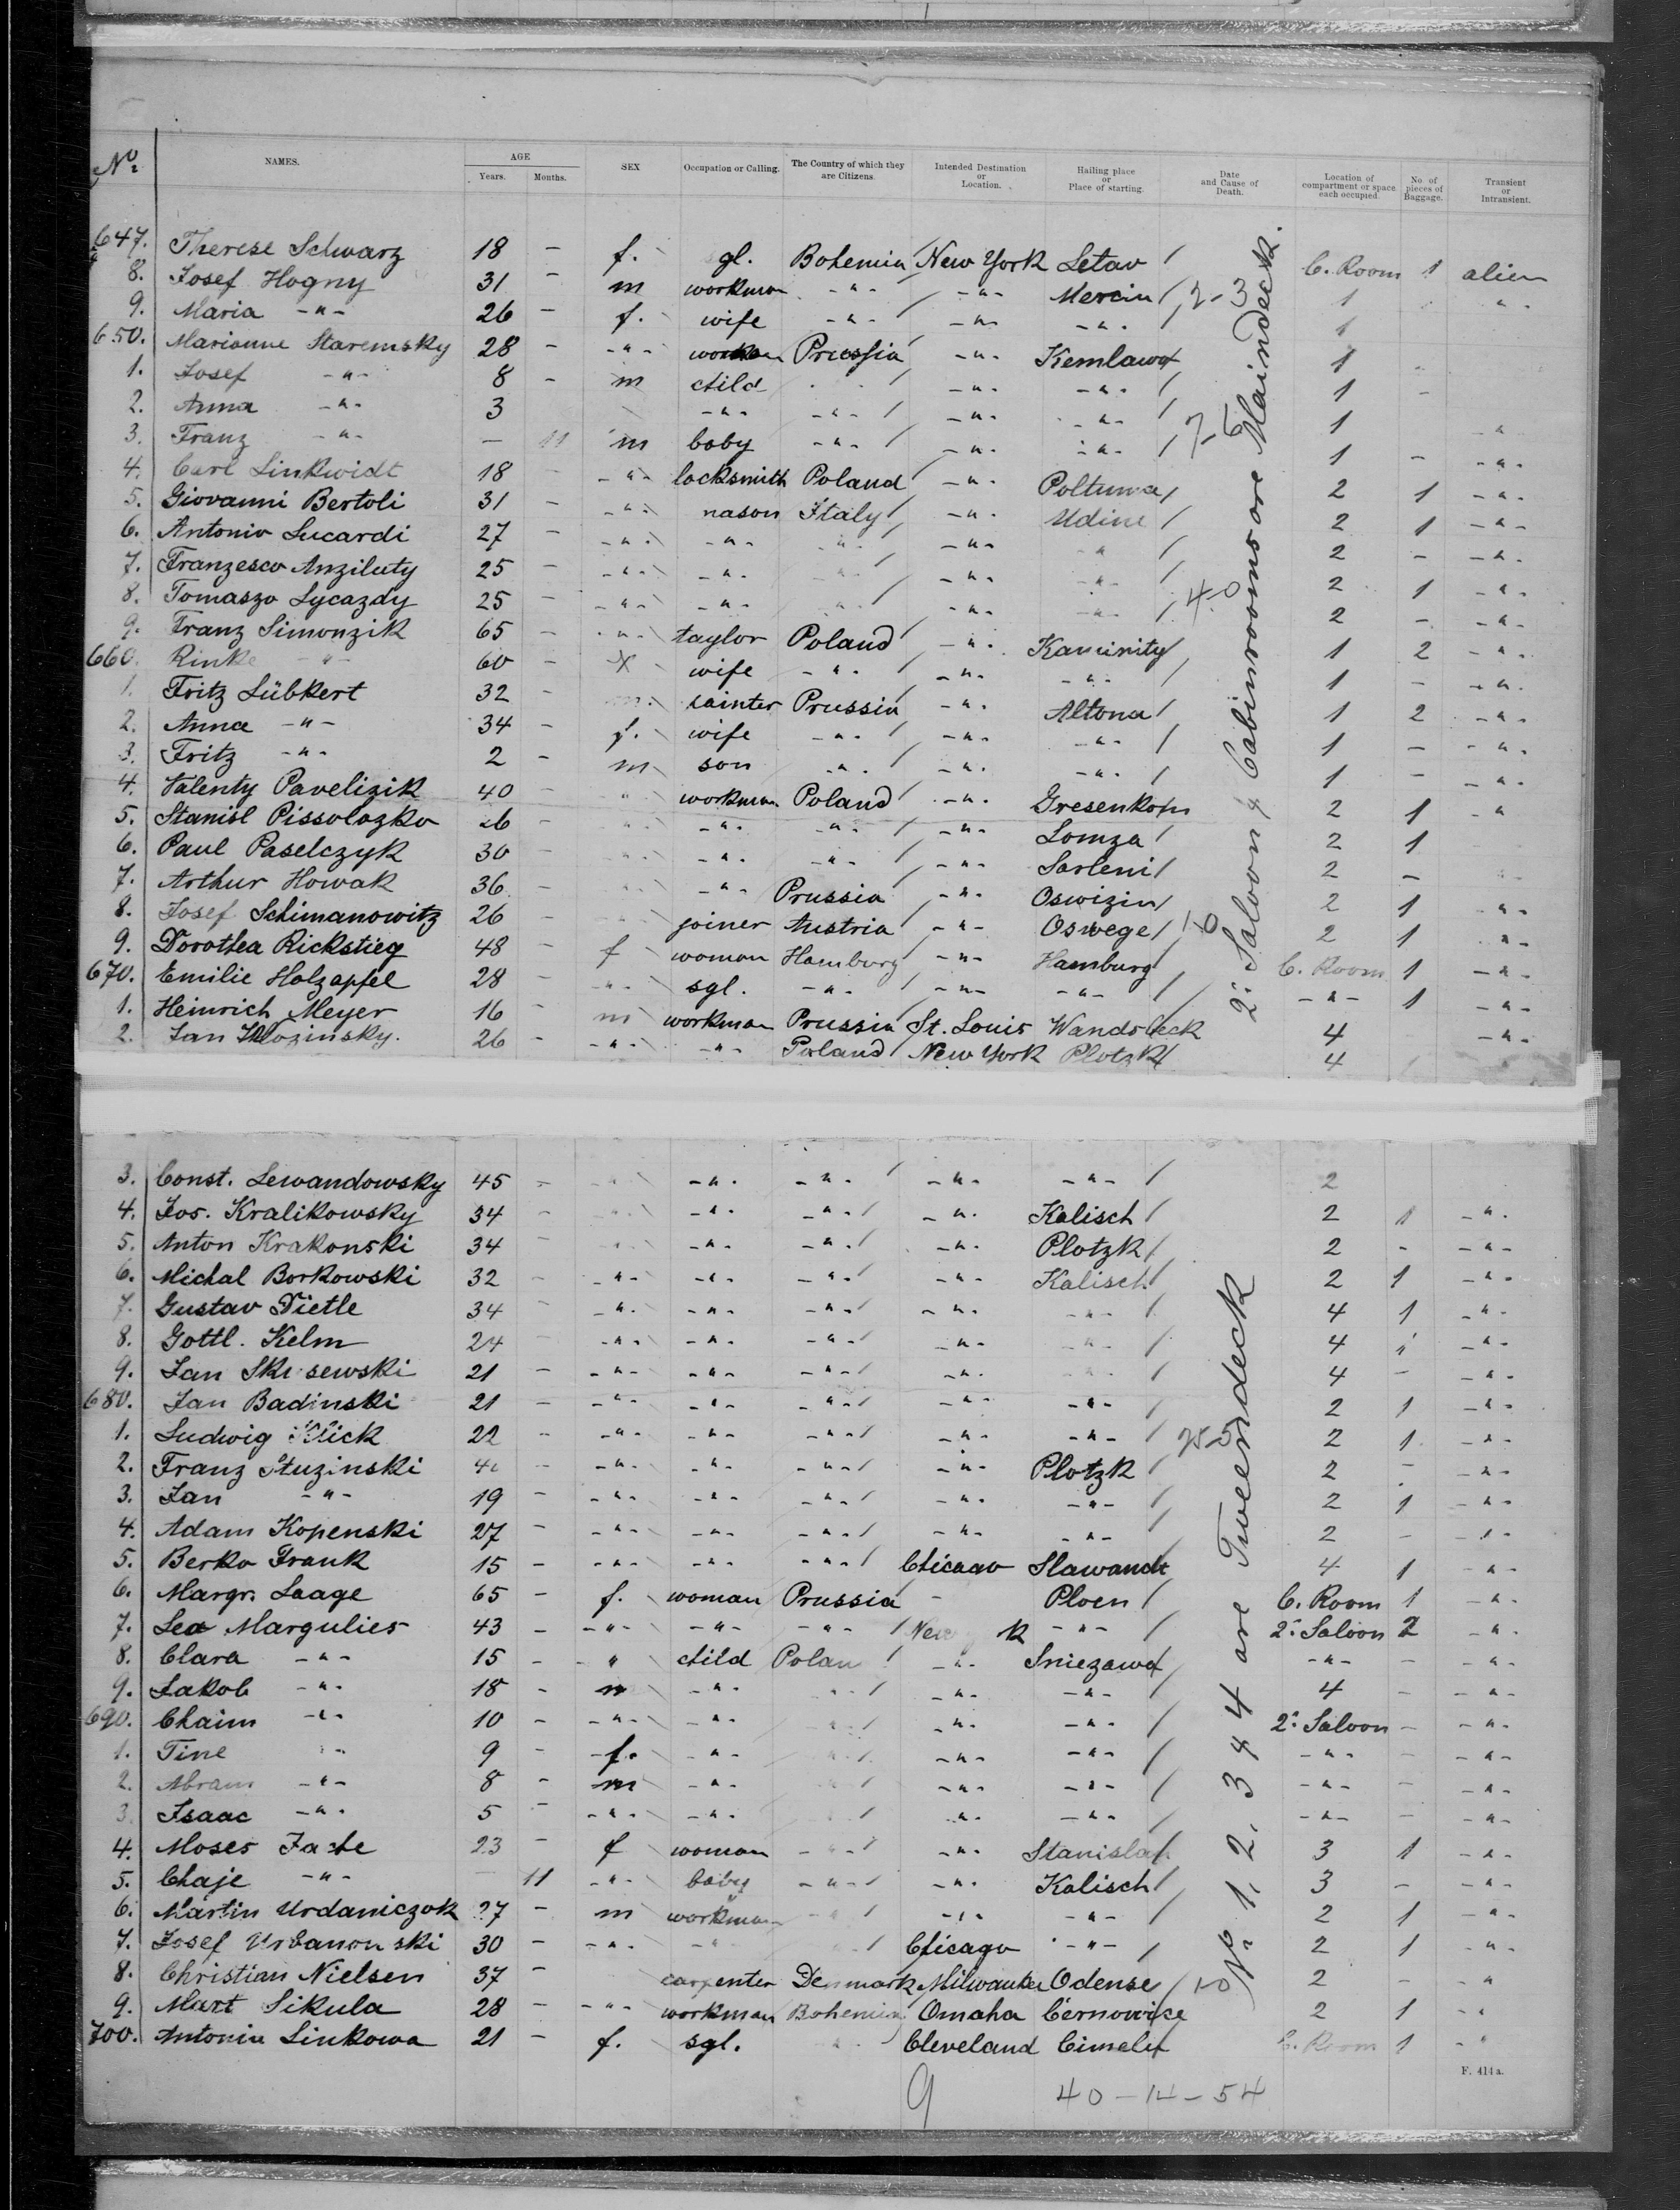 No. NAMES. AGE Years. Months. SEX Occupation or Calling. The Country of which they are Citizens. Intended Destination or Location. Hailing place or Place of starting. Date and Cause of Death. Location of compartment or space each occupied. No. of pieces of Baggage. Transient or Intransient.
647. Therese Schwarz 18 - f. sgl. Bohemia New York Letav C. Room 1 alien
8. Josef Hogny 31 - m workman -"- -"- Mercin 1 -"-
9. Maria -"- 26 - f. wife -"- -"- -"- 1
650. Marianne Staremsky 28 - -"- workman Prussia -"- Kemlawa 1
1. Josef -"- 8 - m child -"- -"- 1 -
2. Anna -"- 3 -"- -"- -"- -"- 1
3. Franz -"- - 11 m baby -"- -"- -"- 1 - -"-
4. Carl Linkwidt 18 - -"- locksmith Poland -"- Poltuwa 2 1 -"-
5. Giovanni Bertoli 31 - -"- mason Italy -"- Udine 2 1 -"-
6. Antonio Lucardi 27 - -"- -"- -"- -"- -"- 2 - -"-
7. Franzesco Anziluty 25 - -"- -"- -"- -"- -"- 2 1 -"-
8. Tomaszo Lycazdy 25 - -"- -"- -"- -"- -"- 2 - -"-
9. Franz Simonzik 65 - -"- taylor Poland -"- Kaminity 1 2 -"-
660. Rinke -"- 60 - wife -"- -"- -"- 1 - -"-
1. Fritz Lübkert 32 - m. painter Prussia -"- Altona 1 2 -"-
2. Anna -"- 34 - f. wife -"- -"- -"- 1 - -"-
3. Fritz -"- 2 - m son -"- -"- -"- 1 - -"-
4. Valenty Pavelizik 40 - " workman Poland -"- Gresenkop 2 1 -"-
5. Stanisl Pissolozko 26 -"- -"- -"- Lomza 2 1
6. Paul Paselczyk 30 - -"- -"- -"- -"- Sarleni 2 -
7. Arthur Howak 36 - -"- Prussia -"- Oswizin 2 1 -"-
8. Josef Schimanowitz 26 - joiner Austria -"- Oswege 2 1 -"-
9. Dorothea Rickstieg 48 - f woman Hamburg -"- Hamburg C. Room 1 -"-
670. Emilie Holzapfel 28 - -"- sgl. -"- -"- -"- -"- 1 -"-
1. Heinrich Meyer 16 - m workman Prussia St. Louis Wandsbeck 4 -"-
2. Jan 26 - -"- -"- Poland New York Plotzk 4
3. Const. Lewandowsky 45 - -"- -"- -"- -"- 2
4. Jos. Kralikowsky 34 - -"- -"- -"- Kalisch 2 1 -"-
5. Anton Krakonski 34 - -"- -"- -"- Plotzk 2 - -"-
6. Michal Borkowski 32 - -"- -"- -"- -"- Kalisch 2 1 -"-
7. Gustav Dietle 34 - -"- -"- -"- -"- -"- 4 1 -"-
8. Gottl. Kelm 24 -"- -"- -"- -"- -"- 4 1 -"-
9. Jan 21 - -"- -"- -"- -"- 4 - -"-
680. Jan Badinski 21 - -"- -"- -"- -"- -"- 2 1 -"-
1. Ludwig Klick 22 - -"- -"- -"- -"- -"- 2 1 -"-
2. Franz Stuzinski - -"- -"- -"- -"- Plotzk 2 - -"-
3. Jan -"- 19 - -"- -"- -"- -"- -"- 2 1 -"-
4. Adam Kopenski 27 - -"- -"- -"- -"- -"- 2 - -"-
5. Berko Frank 15 - -"- -"- -"- Chicago Slawandt 4 1 -"-
6. Margr. Laage 65 - f. woman Prussia - Ploen C. Room 1 -"-
7. Lea Margulies 43 - -"- -"- -"- New York -"- 2: Saloon 2 -"-
8. Clara -"- 15 - -"- child Poland -"- Sniezawa -"- - -"-
9. Jakob -"- 18 - m -"- -"- -"- -"- 4 - -"-
690. Chaim -"- 10 - -"- -"- -"- -"- 2: Saloon - -"-
1. Tine -"- 9 - f. -"- -"- -"- -"- -"- - -"-
2. Abram -"- 8 - m -"- -"- -"- -"- - -"-
3. Isaac -"- 5 - -"- -"- -"- -"- -"- - -"-
4. Moses 23 - f woman -"- -"- Stanislau 3 1 -"-
5. Chaje -"- - 11 -"- baby -"- -"- Kalisch 3 - -"-
6. Martin Urdaniczok 27 - m workman -"- -"- -"- 2 1 -"-
7. Josef Urbanonski 30 - -"- -"- Chicago -"- 2 1 -"-
8. Christian Nielsen 37 - carpenter Denmark Milwaukee Odense 2 - -"-
9. Mart Sikula 28 - -"- workman Bohemia Omaha Cernowice 2 1 -"-
700. Antonia Linkowa 21 - f. sgl. -"- Cleveland Cimelu C. Room 1 -"-
2: Saloon & Cabinrooms are Maindeck.
No 1, 2, 3 & 4 are Tweendeck
2-3
7-6
4-0
25-5
1-0
9
40-14-54
F. 414 a.